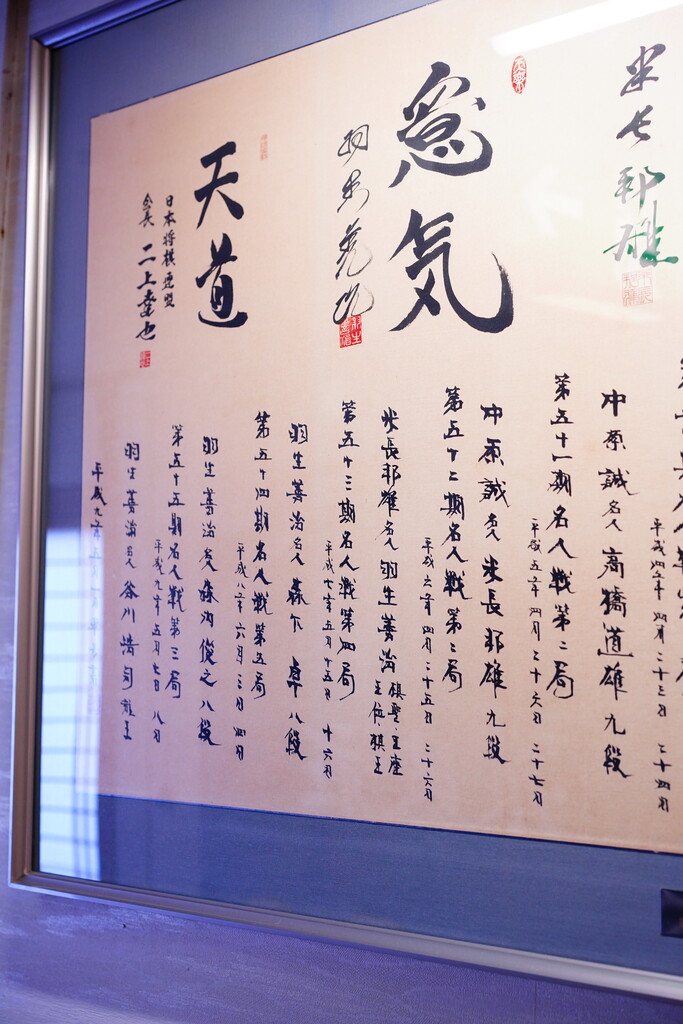 米長邦雄
気
羽生善治
天道
日本将棋連盟
会長 二上達也
平成四年四月二十三日 二十四日
中原誠名人 高橋道雄九段
第五十一期名人戦第二局
平成五年四月二十六日 二十七日
中原誠名人 米長邦雄九段
第五十二期名人戦第二局
平成六年四月二十五日 二十六日
米長邦雄名人 羽生善治 棋聖・王座
王位・棋王
第五十三期名人戦第四局
平成七年五月十五日 十六日
羽生善治名人 森下卓八段
第五十四期名人戦第五局
平成八年六月三日 四日
羽生善治名人 森内俊之八段
第五十五期名人戦第三局
平成九年五月七日 八日
羽生善治名人 谷川浩司竜王
平成九年